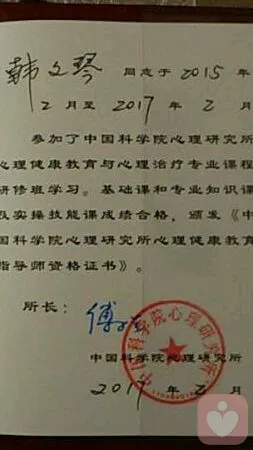 韩文琴 同志于 2015 年
2 月至 2017 年 2 月
参加了中国科学院心理研究所
心理健康教育与心理治疗专业课程
研修班学习。基础课和专业知识课
及实操技能课成绩合格，颁发《中
国科学院心理研究所心理健康教育
指导师资格证书》。
所长：傅
中国科学院心理研究所
2017 年 2 月
中国科学院心理研究所